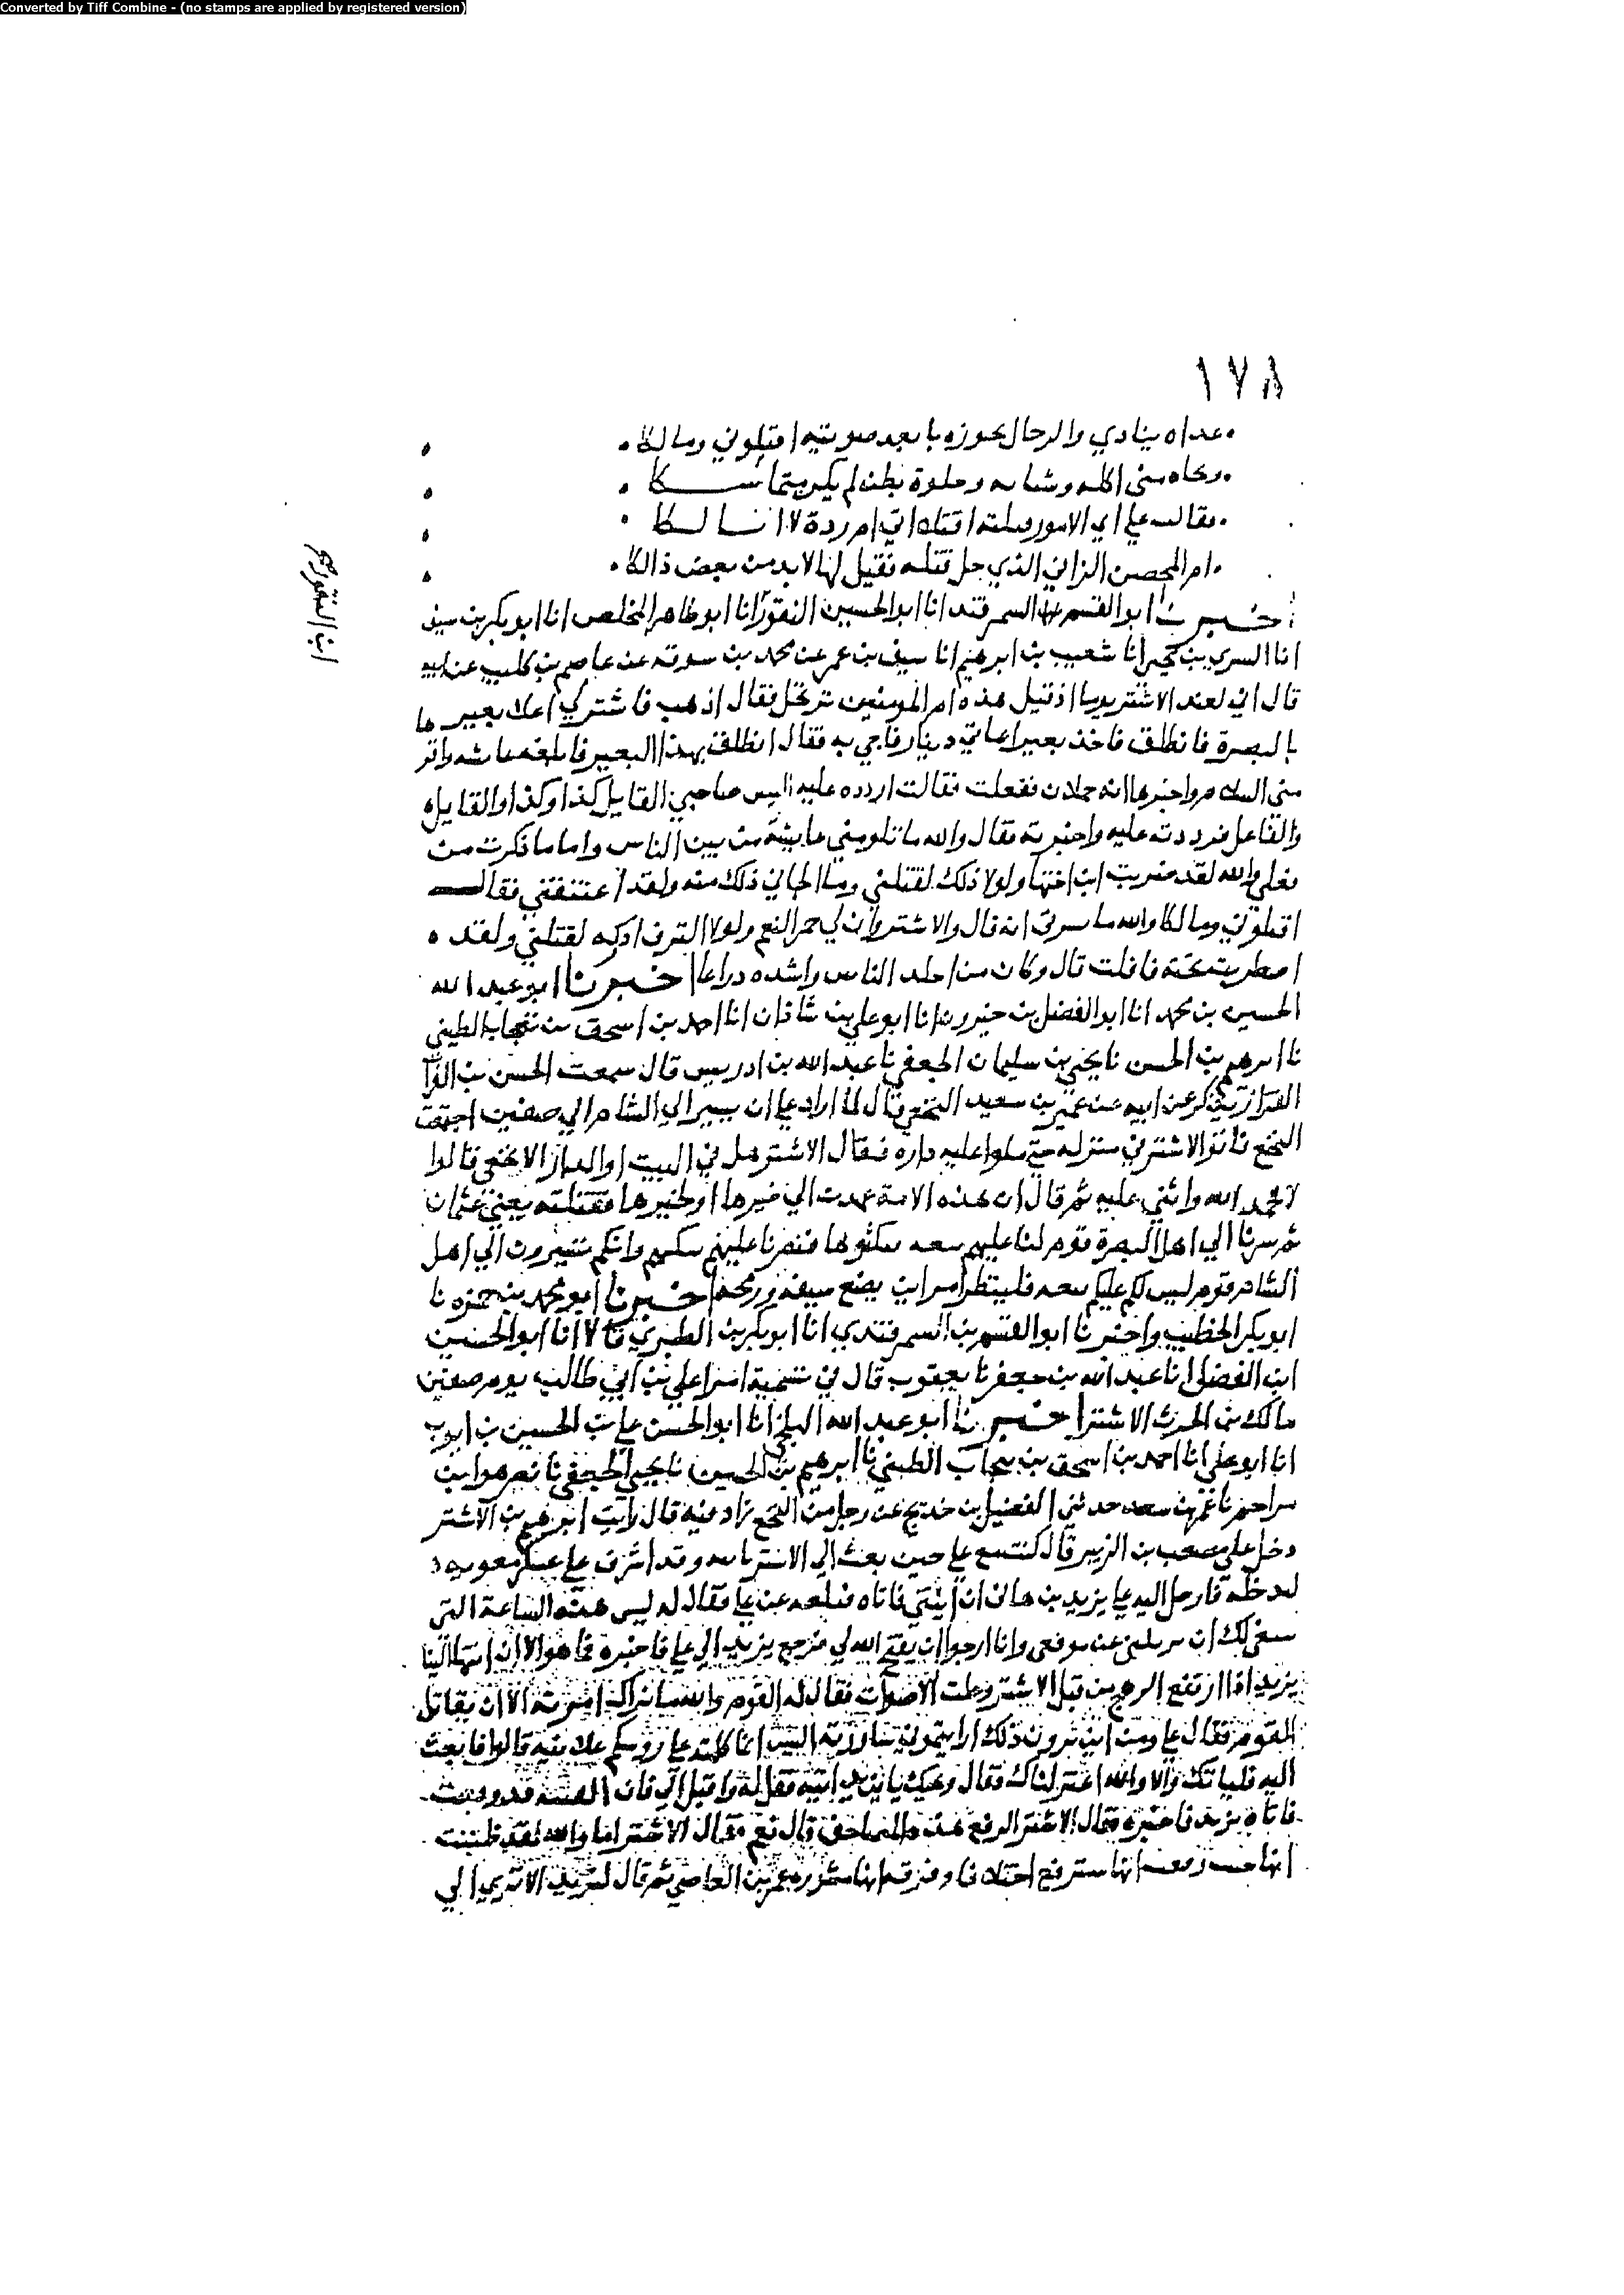 Converted by Tiff Combine - (no stamps are applied by registered version)
١٧٨
غداه ينادي والرحال بحوزه بابعد صوتيه اقتلوني ومالكا
ونجاه مني اكله وشبابه وخلوة بطن لم يكن متماسكا
فقالت علي اي الامور قتلته اقتلا اتي ام ردة لا ابا لكا
ام المحصن الزاني الذي حل قتله فقيل لها لابد من بعض ذالكا
ابن النقور صح
اخبرنا ابو القسم السمرقند انا ابو الحسين النقور انا ابو طاهر المخلص انا ابو بكر بن سيف
انا السري بن يحيى انا شعيب بن ابرهيم انا سيف بن عمر عن محمد بن سوقه عن عاصم بن كليب عن ابيه
قال اني لعند الاشتر يوما اذ قيل هذه ام المومنين ترتحل فقال اذهب فاشتر لي اعلا بعير ها
بالبصرة فانطلق فاخذ بعيرا بماتي دينار فاجي به فقال انطلق بهذا البعير فابلغه عايشه واقر
مني السلام واخبرها انه حملان ففعلت فقالت اردده عليه اليس صاحبي القايل كذا وكذا والقايل
والفاعل فرددته عليه واخبرته فقال والله ما تلومني عايشة من بين الناس واما ما ذكرت من
فعلي والله لقد ضربت ابن اختها ولولا ذلك لقتلني وما الجاني ذلك منه ولقد اعتنقني فقال
اقتلوني ومالكا والله ما سرني انه قال والاشتر وان لي حمر النعم ولولا الترف ادركه لقتلني ولقد
اضطربت تحته فافلت قال وكان من اجلد الناس واشده ذراعا اخبرنا ابو عبد الله
الحسين بن محمد انا ابو الفضل بن خيرون انا ابو علي بن شاذان انا احمد بن اسحق بن نيخاب الطيبي
نا ابرهيم بن الحسن نا يحيى بن سليمان الجعفي نا عبد الله بن ادريس قال سمعت الحسن بن الفرات
القزاز يذكر عن ابيه عن عمير بن سعيد النخعي قال لما اراد علي ان يسير الي الشام الي صفين اجتمعت
النخع فاتو الاشتر في منزله حتي ملوا عليه داره فقال الاشتر هل في البيت او الدار الا نخعي قالوا
لا فحمد الله واثني عليه ثم قال ان هذه الامة عمدت الي خيرها او لخيرها فقتلته يعني عثمان
ثم سرنا الي اهل البصرة قوم لنا عليهم بيعه نكثوها فنصرنا عليهم بنكثهم وانكم تسيرون الي اهل
الشام قوم ليس لكم عليكم بيعه فلينظر امرا اين يضع سيفه ورمحه اخبرنا ابو محمد بن حمزه نا
ابو بكر الخطيب واخبرنا ابو القسم بن السمرقندي انا ابو بكر بن الطبري قالا انا ابو الحسين
ابن الفضل انا عبد الله بن جعفر نا يعقوب قال في تسمية امرا علي بن ابي طالب يوم صفين
مالك بن الحرث الاشتر اخبرنا ابو عبد الله البلخي انا ابو الحسن علي بن الحسين بن ايوب
انا ابو علي انا احمد بن اسحق بن نيخاب الطيبي نا ابرهيم بن الحسين نا يحيى الجعفي نا نصر هو ابن
مزاحم نا عمر بن سعد حدثني الفضيل بن خديج عن رجل من النخع زاد فيه قال رايت ابرهيم بن الاشتر
دخل علي مصعب بن الزبير قال كنت مع علي حين بعث الي الاشتر ياتيه وقد اشرف علي عسكر معويه
ليدخله فارسل اليه علي يزيد بن هاني ان ايتني فاتاه فبلغه عن علي فقال له ليس هذه الساعة التي
ينبغي لك ان تزيلني عن موقفي وانا ارجوا ان يفتح الله لي فرجع يزيد الي علي فاخبره فما هو الا ان انتهى الينا
يزيد اذ ارتفع الرهج من قبل الاشتر وعلت الاصوات فقال له القوم والله ما نراك امرته الا ان يقاتل
القوم فقال علي ومن اين ترون ذلك ارايتموني ساررته اليس انما كلمته علي روسكم علانيه قالوا فابعث
اليه فلياتك والا والله اعتزلناك فقال ويحك يا يزيد ايته فقل له اقبل الي فان الفتنه قد وقعت
فاتاه يزيد فاخبره فقال الاشتر الرفع هذه المصاحف قال نعم فقال الاشتر اما والله لقد ظننت
انها حين رفعت انها سترفع اختلافا وفرقه انها مشوره عمر بن العاصي ثم قال ليزيد الا تري الي